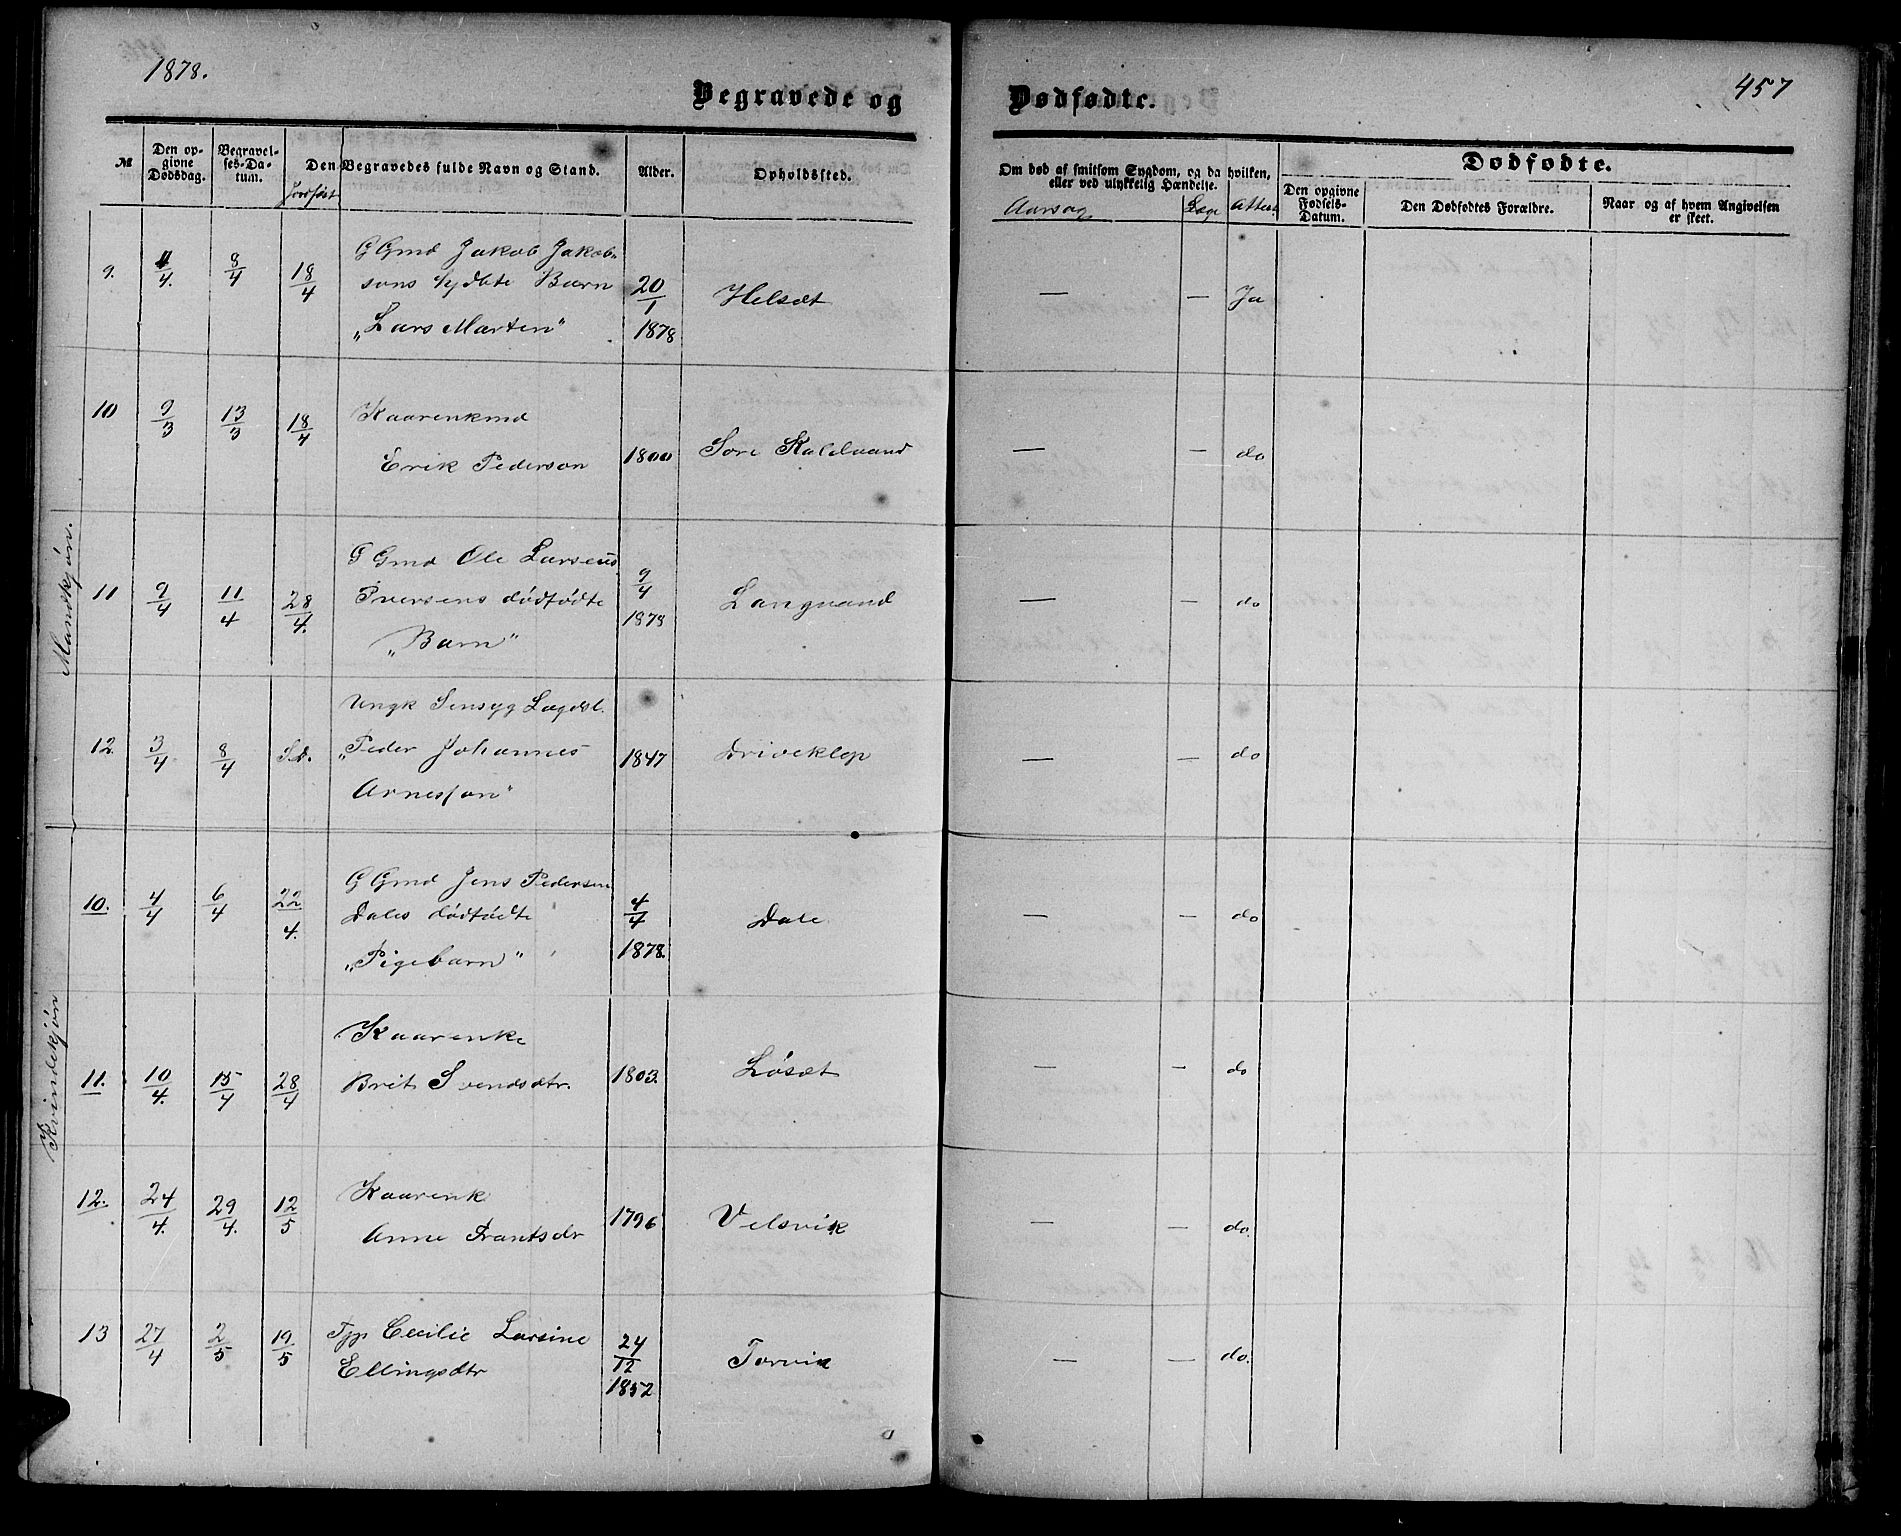 1878.
457
Begravede og
Dødfødte.
№
Den op-
givne
Dødsdag.
Begravel-
ses-Da-
tum.
Jordfæst
Den Begravedes fulde Navn og Stand.
Alder.
Opholdssted.
Om død af smitsom Sygdom, og da hvilken,
eller ved ulykkelig Hændelse.
Aarsag
Læge
Attest
Dødfødte.
Den opgivne
Fødsels-
Datum.
Den Dødfødtes Forældre.
Naar og af hvem Angivelsen
er skeet.
Mandkjøn.
9. 4/4. 8/4 18/4
G Gmd Jakob Jakob-
sons Barn
„Lars Marten"
20/1 1878
Helsæt
— — Ja
10 9/3 13/3 18/4
Kaarenkmd
Erik Pederson
1800
Sore Kaldvand
— — do
11 9/4 11/4 28/4.
G Gmd Ole Larsens
Iversens dødfødte
„Barn"
9/4 1878
Langvand
— — do
12. 3/4 8/4 Sd.
Ungk Sinsyg Lægdsl.
„Peder Johannes
Arnesson"
1847
Driveklep
— — do
Kvindekjøn
10. 4/4 6/4 22/4.
G Gmd Jens Pedersen
Dales dødfødte
„Pigebarn"
4/4 1878.
Dale
— — do
11. 10/4. 15/4 28/4
Kaarenke
Brit Svendsdtr.
1803.
Løsæt
— — do
12. 24/4. 29/4. 12/5
Kaarenk
Anne Frantsdr
1796
Velsvik
— — do.
13 27/4 2/5 19/5
Tjp Cecilie Larsine
Ellingsdtr
24/12 1852
Torvik
— — do.